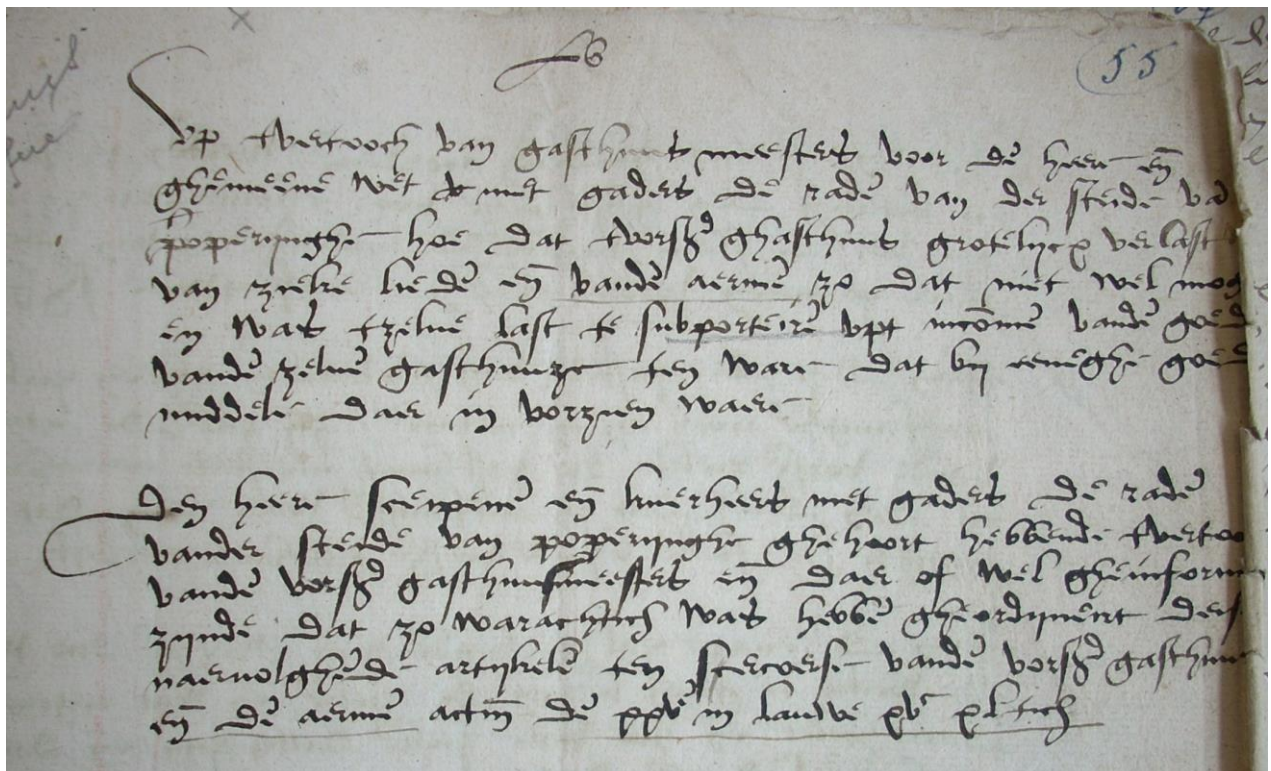 55
Up tvertooch van gasthuus meesters voor dē heere eñ
ghemeene wet met gaders de radē van der stede vā
poperijnghe hoe dat tvorsz ghasthuus grotelijcx verlast
van zieke liedē eñ vandē aermē zo dat niet wel mog
en was tzelve last te supporteirē upt incōmē vandē goed
vandē zelvē gasthuuze ten ware dat bij eeneghe goed
middelē daer in vorzien waere
Den heere scepenē eñ kuerheers met gaders de radē
vander stede van poperijnghe ghehoort hebbende tvertoo
vandē vorsz gasthuusmeesters eñ daer of wel gheinform
zijnde dat zo warachtich was hebbē gheordineirt dese
naervolghēde artijkelē ten vandē vorsz gasthuu
eñ dē aermē actū dē xxvē in lauwe xvc xltich